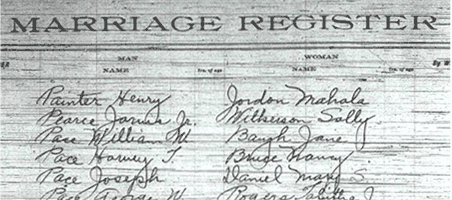 MARRIAGE REGISTER
MAN WOMAN
NAME NAME
Painter Henry Jordon Mahala
Pearce James Jr. Witherson Sally
Pace William W Baugh Jane
Pace Harvey T. Bruce Nancy
Pace Joseph Daniel Mary S.
Pace George W. Rogers Talitha J